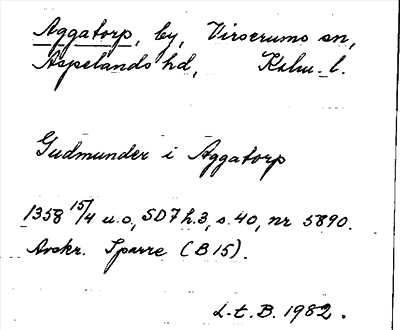 Aggatorp, by, Virserums sn,
Aspelands hd, Kalm. l.
Gudmunder i Aggatorp
1358 15/4 u.o, SD 7 h.3, s. 40, nr 5890.
Avskr. Sparre (B 15).
L.t.B. 1982.